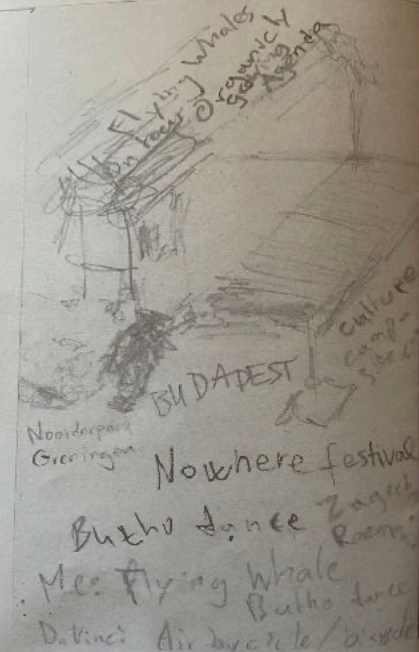 Flying Whales
on tour Organicly
Growing
Agenda
culture
camp-
BUDAPEST
Noorderpark
Groningen
Nowhere festival
Butho dance Zagreb
Me: Flying Whale
Butho dance
DaVinci Air bycicle /